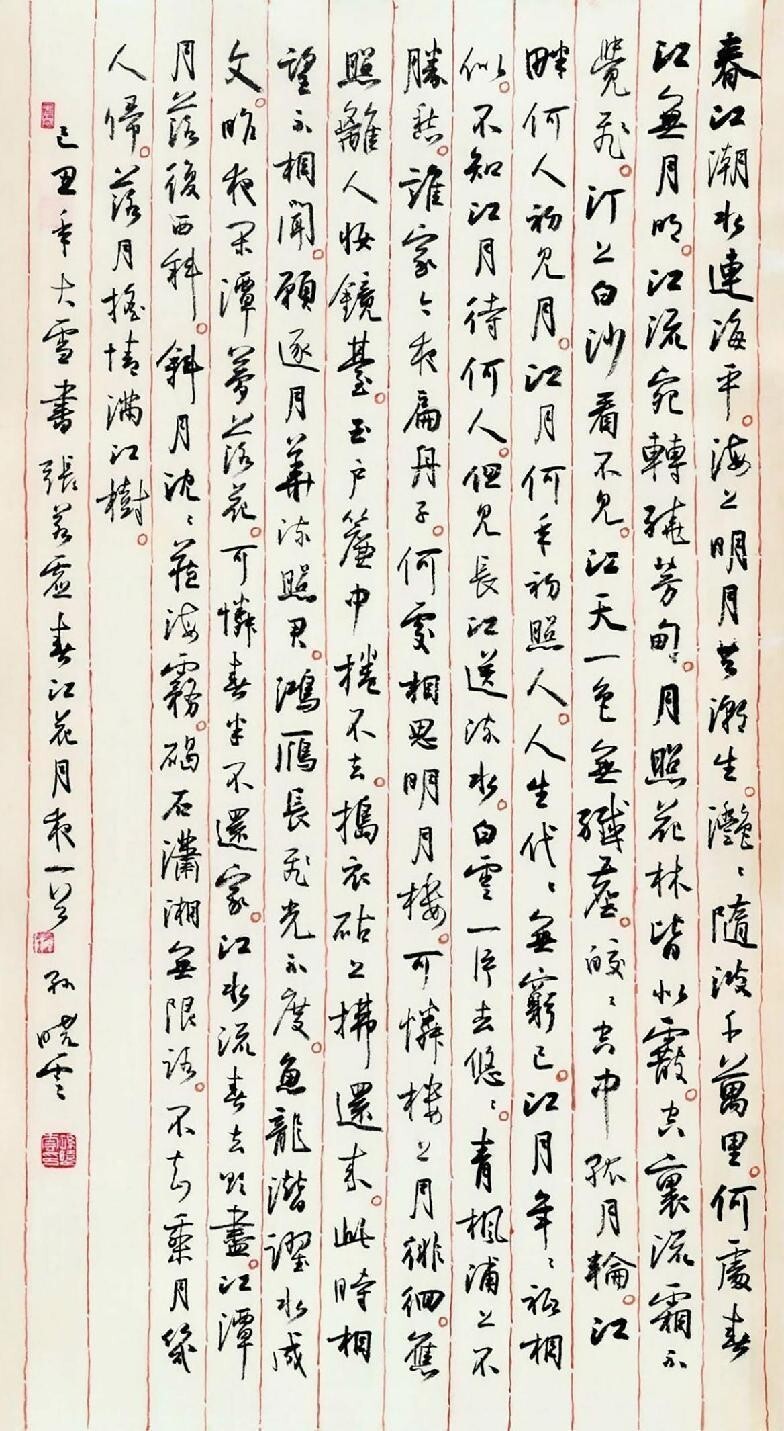 春江潮水連海平。海上明月共潮生。灩〻隨波千萬里。何處春
江無月明。江流宛轉繞芳甸。月照花林皆似霰。空裏流霜不
覺飛。汀上白沙看不見。江天一色無纖塵。皎〻空中孤月輪。江
畔何人初見月。江月何年初照人。人生代〻無窮已。江月年〻祗相
似。不知江月待何人。但見長江送流水。白雲一片去悠〻。青楓浦上不
勝愁。誰家今夜扁舟子。何處相思明月樓。可憐樓上月徘徊。應
照離人妝鏡臺。玉戶簾中捲不去。搗衣砧上拂還來。此時相
望不相聞。願逐月華流照君。鴻雁長飛光不度。魚龍潛躍水成
文。昨夜閑潭夢落花。可憐春半不還家。江水流春去欲盡。江潭
月落復西斜。斜月沈〻藏海霧。碣石瀟湘無限路。不知乘月幾
人歸。落月搖情滿江樹。
己丑年大雪書張若虛春江花月夜一首 孫曉雲